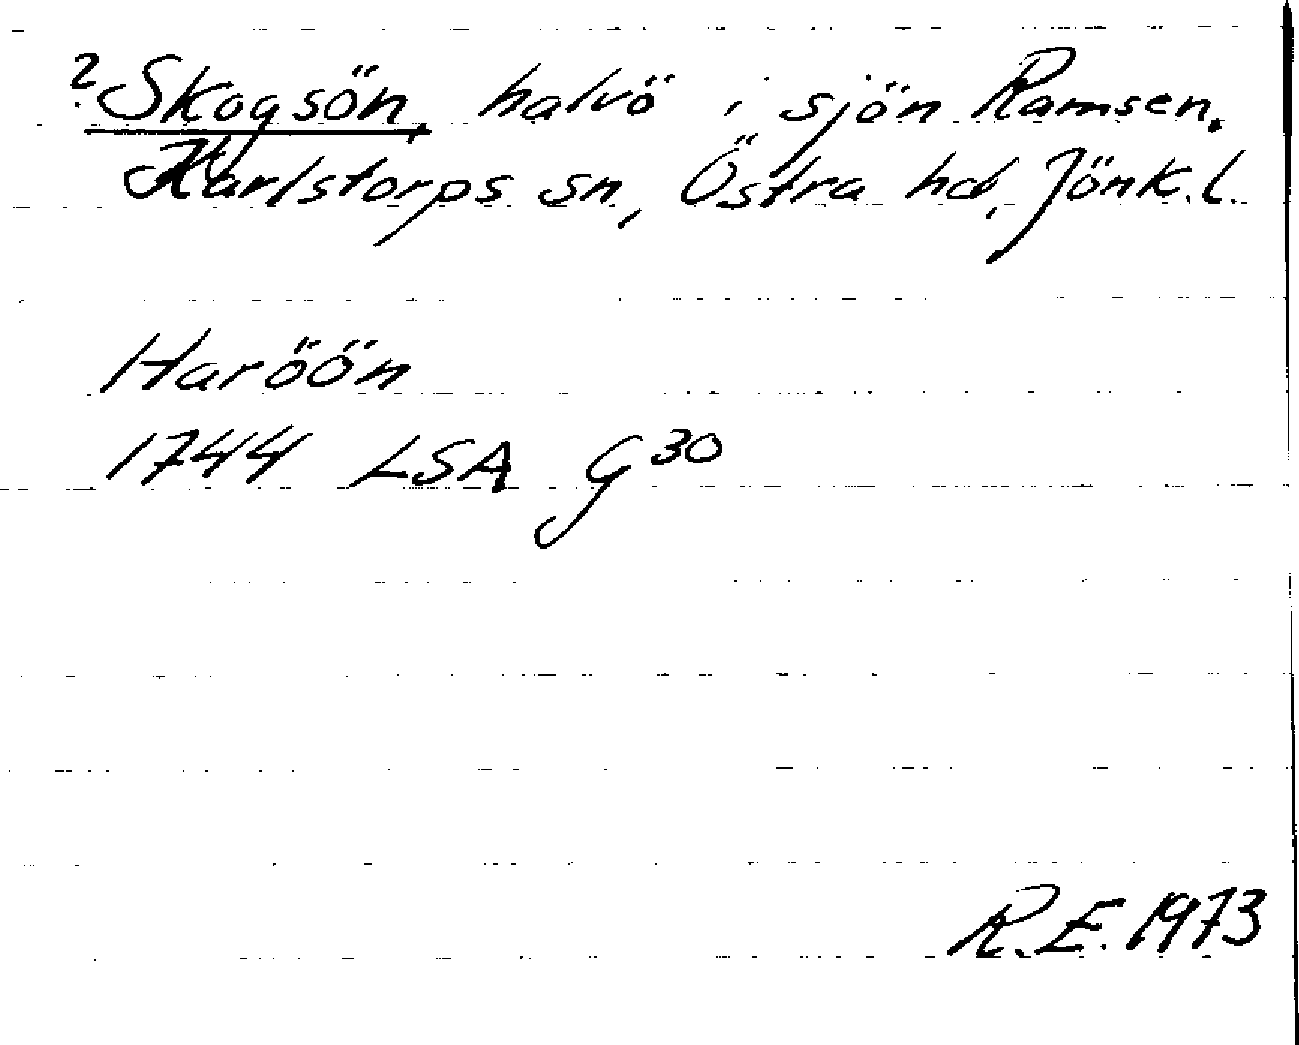 ? Skogsön, halvö i sjön Ramsen.
Karlstorps sn, Östra hd, Jönk.l.
Haröön
1744 LSA G30
R.E. 1973